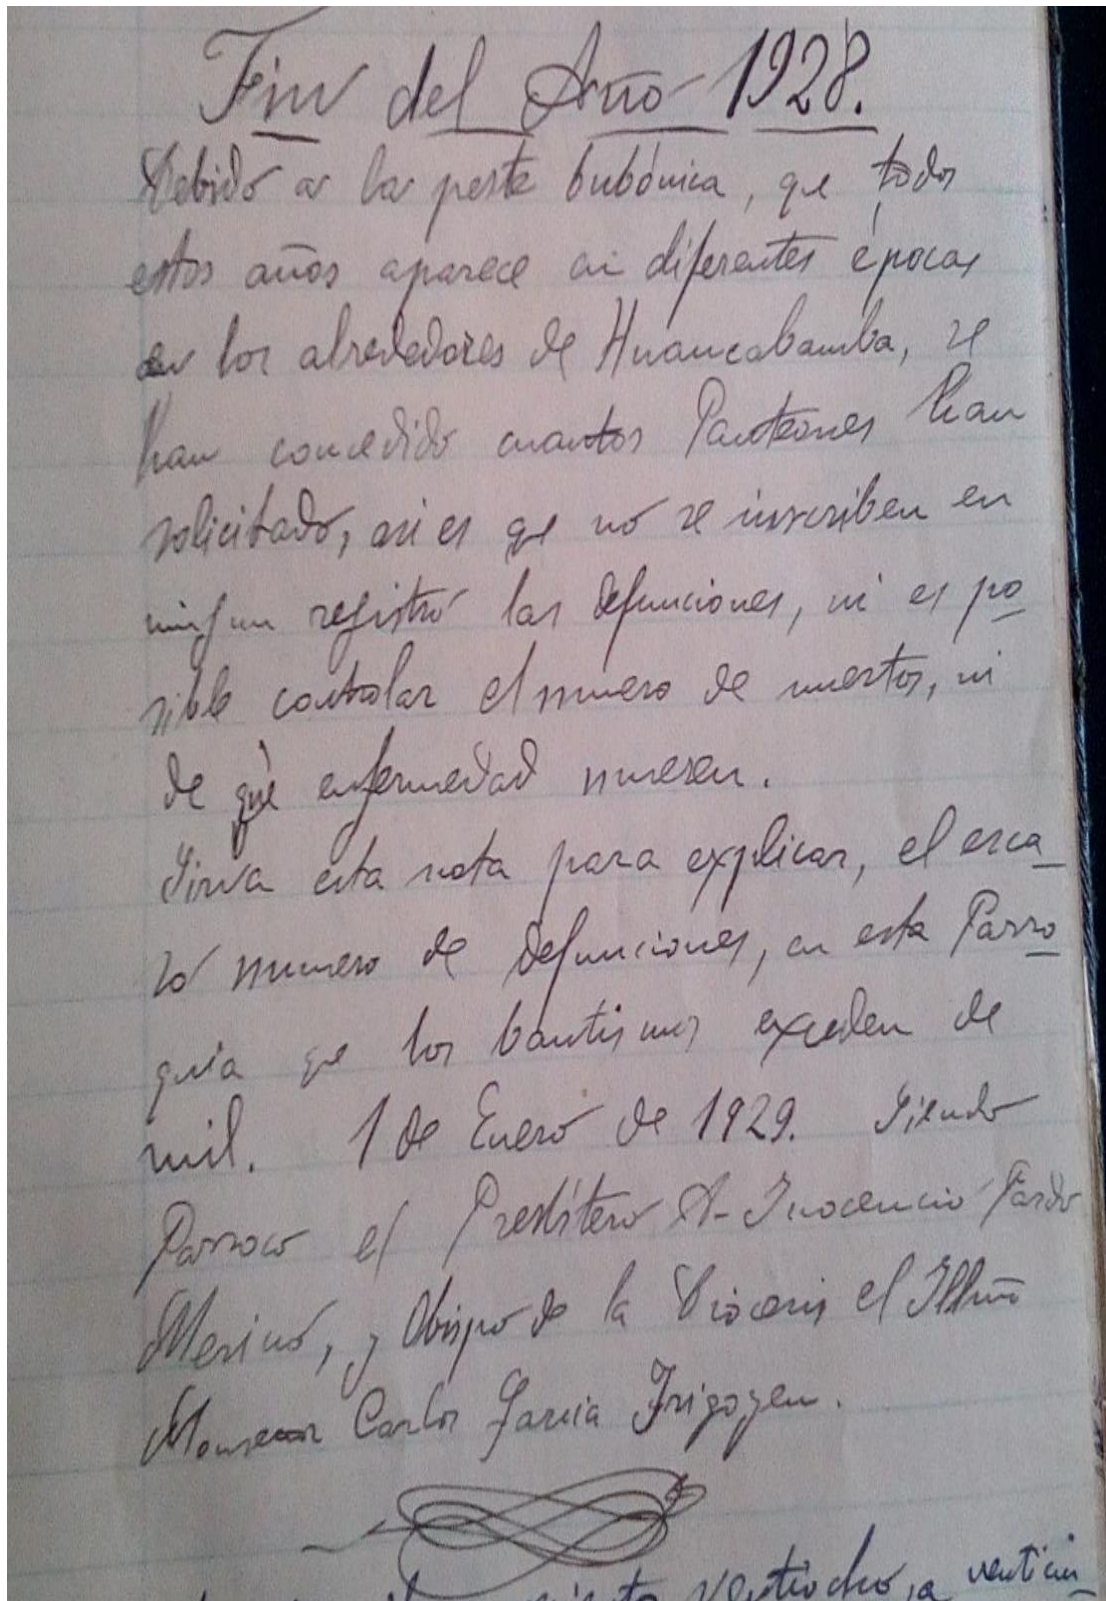 Fin del Año 1928.
Debido a la peste bubónica, qe todos
estos años aparece en diferentes épocas
en los alrededores de Huancabamba, se
han concedido cuantos Panteones han
solicitado, asi es qe no se inscriben en
ningun registro las defunciones, ni es po
sible controlar el numero de muertos, ni
de qè enfermedad mueren.
Sirva esta nota para explicar, el esca
so numero de defunciones, en esta Parro
quia qe los bautismos exceden de
mil. 1 de Enero de 1929. Siendo
Parroco el Presbítero A- Inocencio Pardo
Merino, y Obispo de la Diocesis el Illmo
Monseñor Carlos Garcia Irigoyen.
ventiocho, a venticin